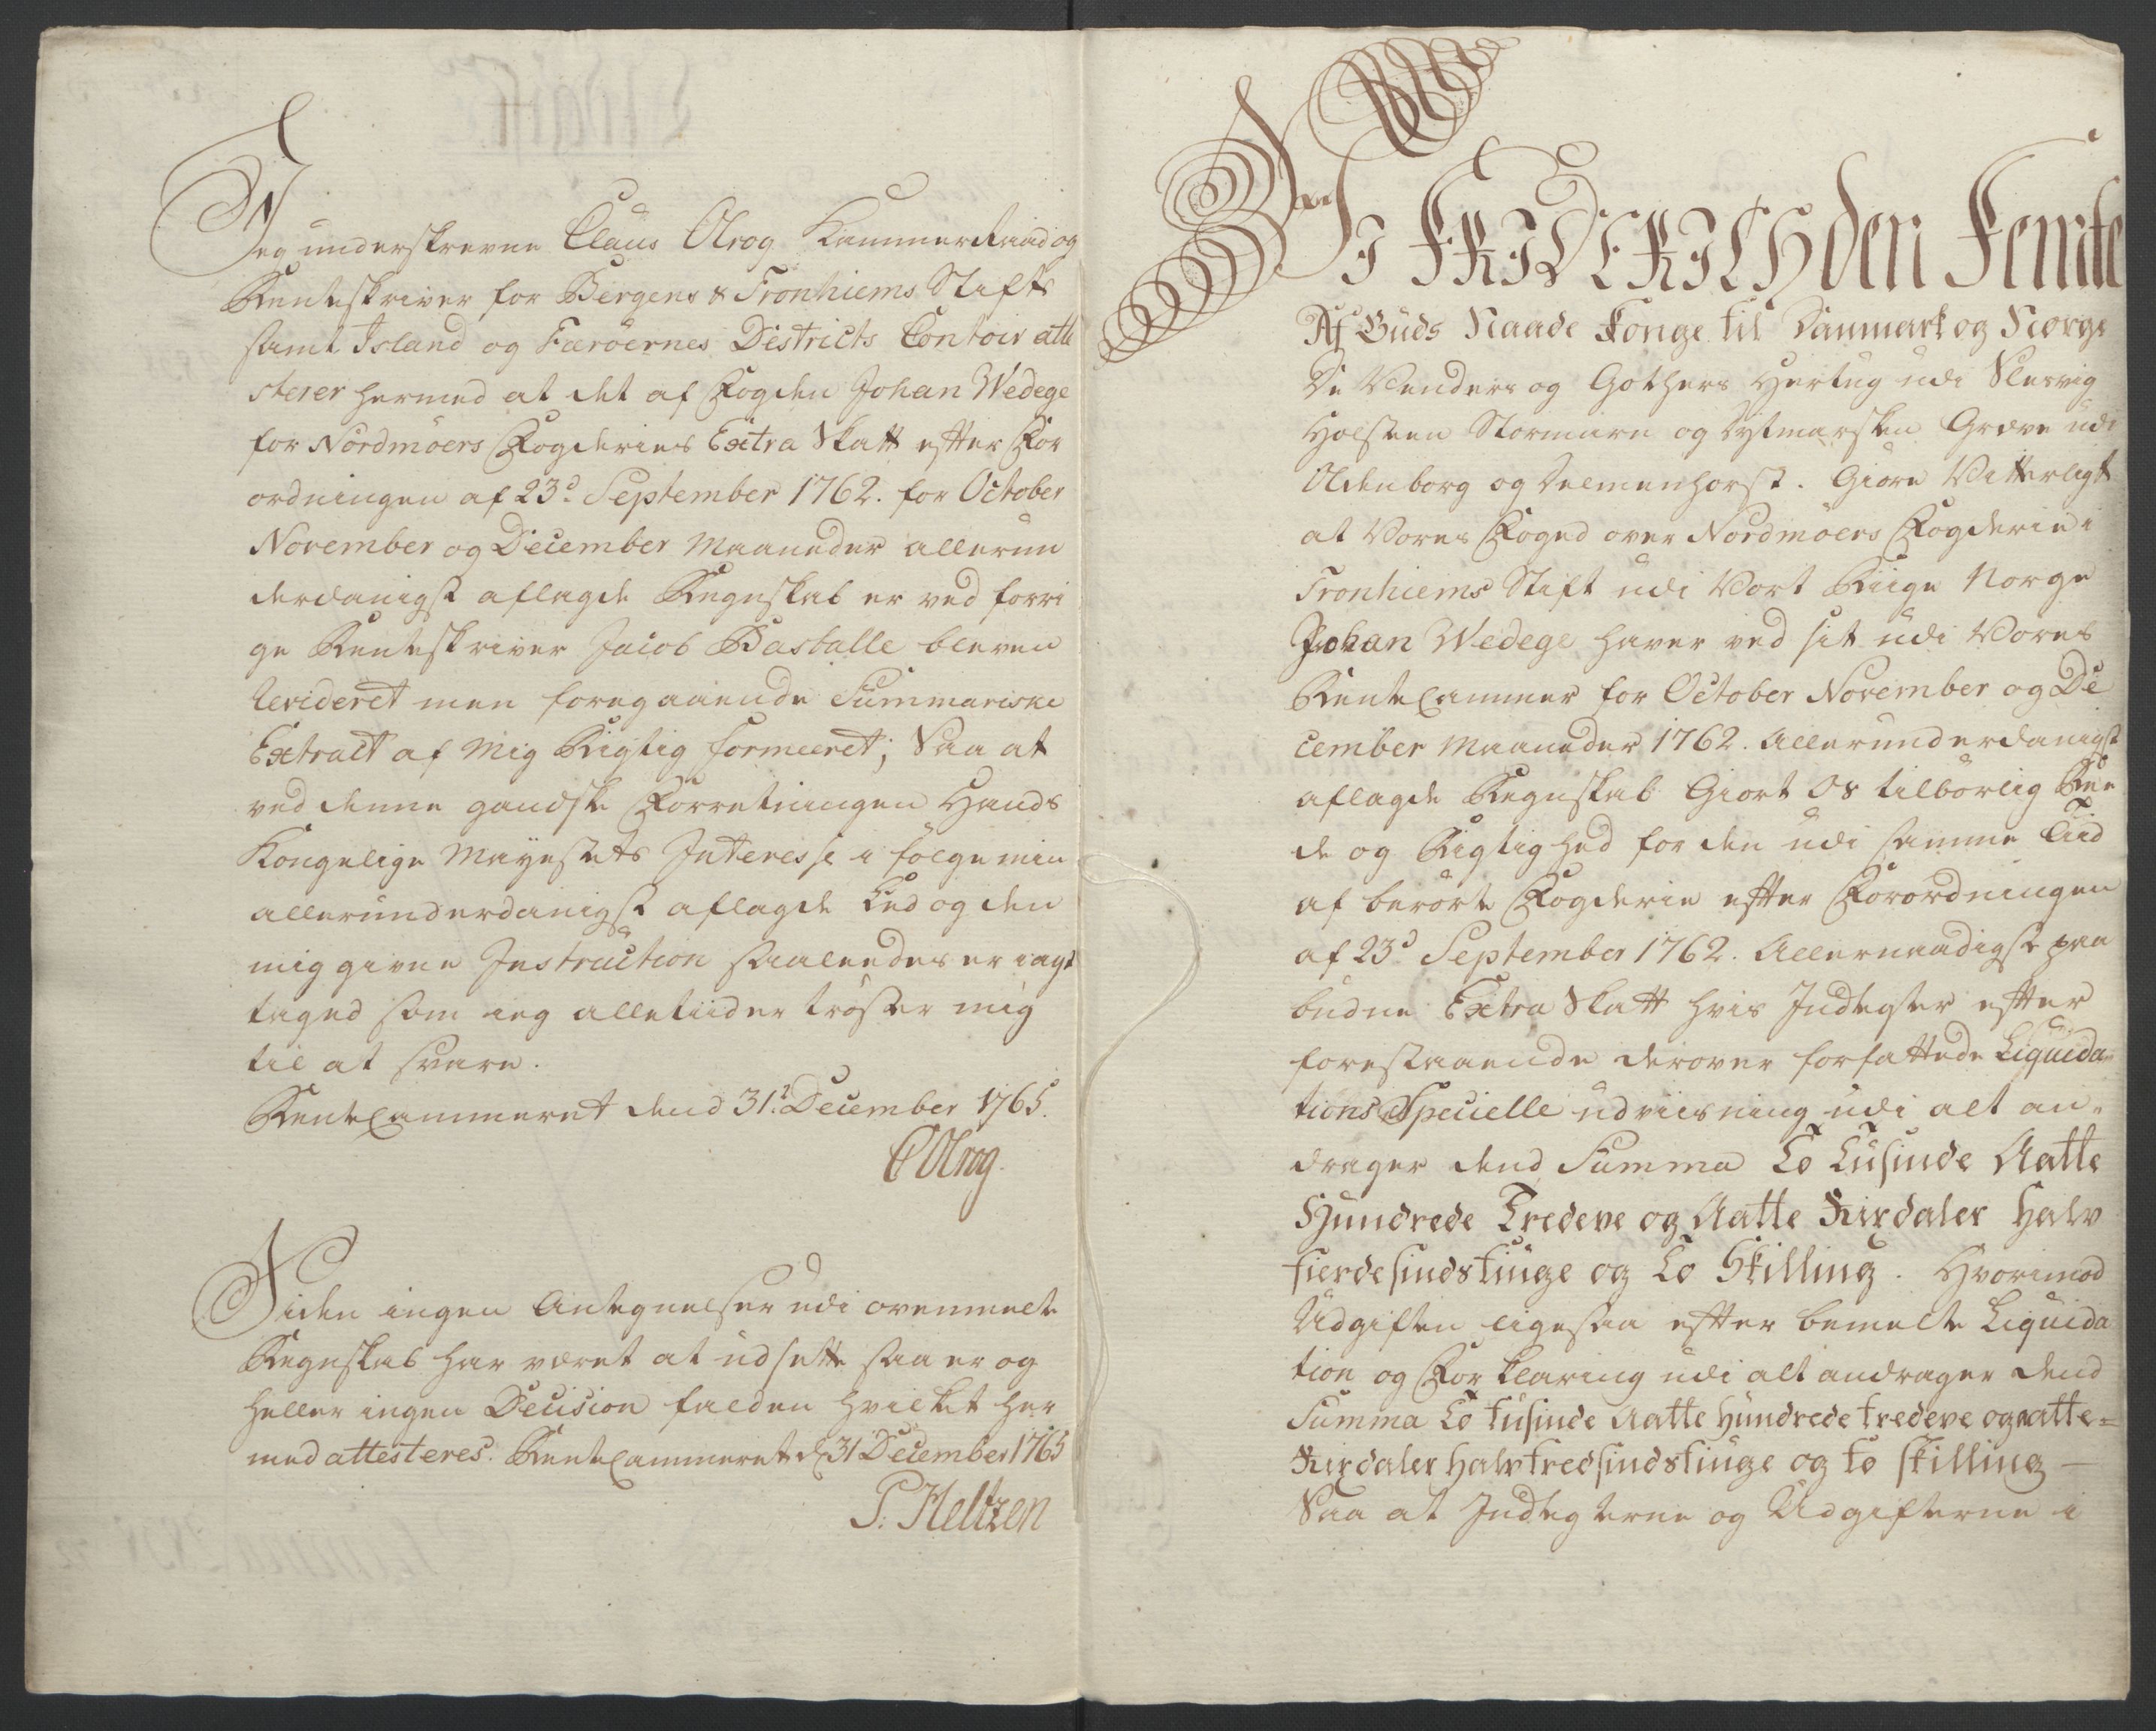 Jeg underskrevne Claus Olrog Kammerraad og
Renteskriver for Bergens & Tronhiems Stifts
samt Island og Færöernes Districts Contoir atte
sterer hermed at det af Fogden Johan Wedege
for Nordmöers Fogderies Extra Skatt efter For
ordningen af 23d September 1762. for October
November og December Maaneder allerun
derdanigst aflagde Regnskab er ved forri
ge Renteskriver Jacob Basballe bleven
revideret men foregaaende Summariske
Extract af mig Rigtig formeeret; Saa at
ved denne gandske Forretningen Hands
Kongelige Mayestets Interesse i følge min
allerunderdanigst aflagde Eed og den
mig givne Instruction saaleedes er iagt
taged som ieg alletiider tröster mig
til at svare.
RenteCammeret dend 31te December 1765.
C Olrog
Siden ingen Antegnelser udi ovenmelte
Regnskab har været at udsætte saa er og
heller ingen Decision falden hvilket her
med attesteres. RenteCammeret d 31 December 1765
P. Heltzen
VI FRIDERICH den Femte
Af Guds Naade Konge til Danmark og Norge
De Venders og Gothers Hertug udi Slesvig
Holsteen Stormarn og Dytmarsken Greve udi
Oldenborg og Delmenhorst. Giøre Vitterligt
at Vores Foged over Nordmöers Fogderie i
Tronhiems Stift udi Vort Riige Norge
Johan Wedege haver ved sit udi Vores
RenteCammer for October November og De
cember Maaneder 1762. Allerunderdanigst
aflagde Regnskab Giort Os tilbørlig Ree
de og Rigtighed for den udi samme Tiid
af berørte Fogderie efter Forordningen
af 23d September 1762. Allernaadigst paa
budne Extra Skatt hvis Indtegter efter
forestaaende derover forfattede Liquida-
tions Specielle udviisning udi alt an-
drager dend Summa To Tusinde Aatte
Hundrede Tredeve og Aatte Rixdaler Halv
fierdesindstiuge og To Skilling. Hvorimod
Udgiften ligesaa efter bemelte Liquida
tion og Forklaring udi alt andrager dend
Summa To tusinde Aatte hundrede tredeve og aatte-
Rixdaler halvtredsindstiuge og to skilling —
Saa at Indtegterne og Udgifterne i